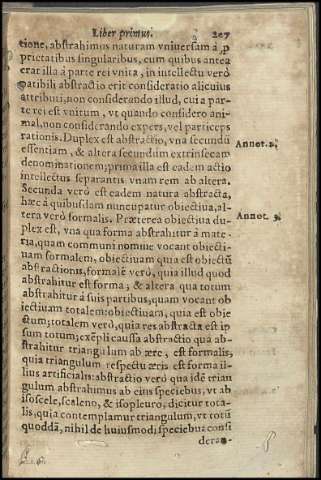 Liber primus. 207
tione, abstrahimus naturam vniuersam à p
prietatibus singularibus, cum quibus antea
erat illa à parte rei vnita, in intellectu verò
patibili abstractio erit consideratio alicuius
attributi, non considerando illud, cui a par-
te rei est vnitum, vt quando considero ani-
mal, non considerando expers, vel particeps
rationis. Duplex est abstractio, vna secundū
essentiam, & altera secundum extrinsecam
denominationem; prima illa est eadem actio
intellectus separantis vnam rem ab altera.
Secunda verò est eadem natura abstracta,
hæc à quibusdam nuncupatur obiectiua, al-
tera verò formalis. Præterea obiectiua du-
plex est, vna qua forma abstrahitur à mate-
ria, quam communi nomine vocant obiecti-
uam formalem, obiectiuam quia est obiectū
abstractionis, formalē verò, quia illud quod
abstrahitur est forma; & altera qua totum
abstrahitur à suis partibus, quam vocant ob
iectiuam totalem: obiectiuam, quia est obie
ctum; totalem verò, quia res abstracta est ip
sum totum; exēpli caussa abstractio qua ab-
strahitur triangulum ab ære, est formalis,
quia triangulum respectu æris est forma il-
lius artificialis: abstractio verò qua idē trian
gulum abstrahimus ab eius speciebus, vt ab
isoscele, scaleno, & isopleuro, dicitur tota-
lis, quia contemplamur triangulum, vt totū
quoddā, nihil de huiusmodi speciebus consi
deran-
Annot. 2.
Annot. 3.